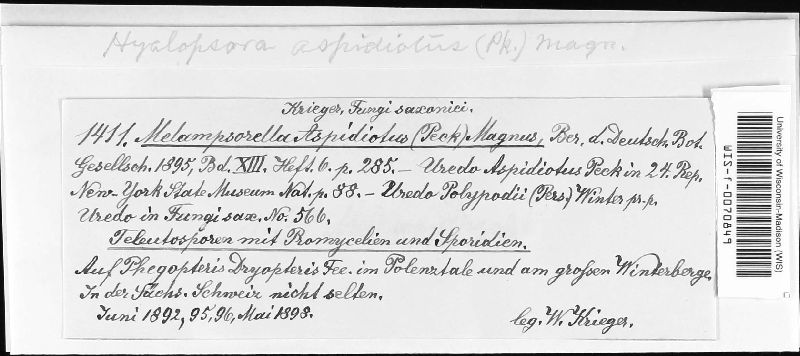 Hyalopsora aspidiotus (Pk.) Magn.
Krieger, Fungi saxonici.
1411. Melampsorella Aspidiotus (Peck) Magnus, Ber. d. Deutsch. Bot.
Gesellsch. 1895, Bd. XIII. Heft. 6. p. 285. – Uredo Aspidiotus Peck in 24. Rep.
New-York State Museum Nat. p. 88. – Uredo Polypodii (Pers.) Winter pr. p.
Uredo in Fungi sax. No. 566.
Teleutosporen mit Promycelien und Sporidien.
Auf Phegopteris Dryopteris Fée. im Polenztale und am großen Winterberge.
In der Sächs. Schweiz nicht selten.
Juni 1892, 95, 96, Mai 1898.
leg. W. Krieger.
University of Wisconsin-Madison (WIS)
WIS-f-0070849